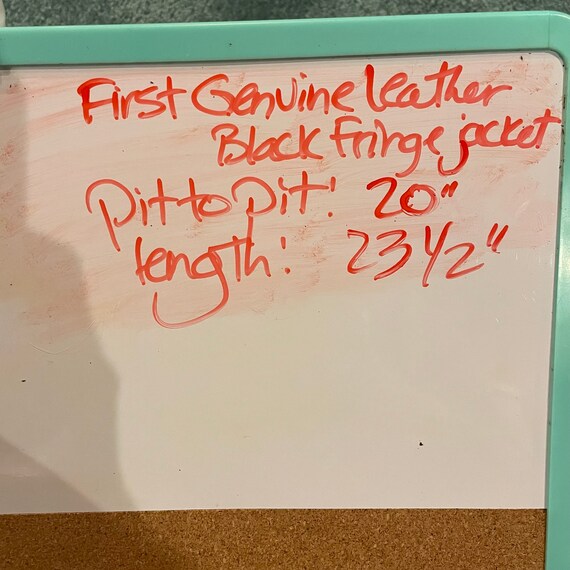 First Genuine leather
Black fringe jacket
Pit to Pit: 20"
length: 23 1/2"